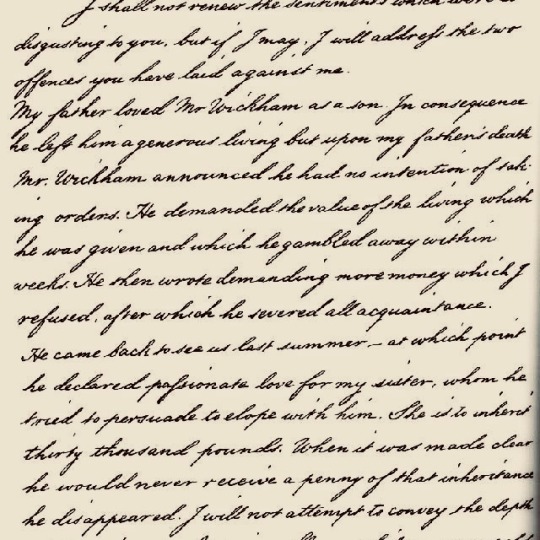 I shall not renew the sentiments which were so
disgusting to you, but if I may, I will address the two
offences you have laid against me.
My father loved Mr Wickham as a son. In consequence
he left him a generous living but upon my father's death
Mr. Wickham announced he had no intention of tak-
ing orders. He demanded the value of the living which
he was given and which he gambled away within
weeks. He then wrote demanding more money which I
refused, after which he severed all acquaintance.
He came back to see us last summer, – at which point
he declared passionate love for my sister, whom he
tried to persuade to elope with him. She is to inherit
thirty thousand pounds. When it was made clear
he would never receive a penny of that inheritance
he disappeared. I will not attempt to convey the depth